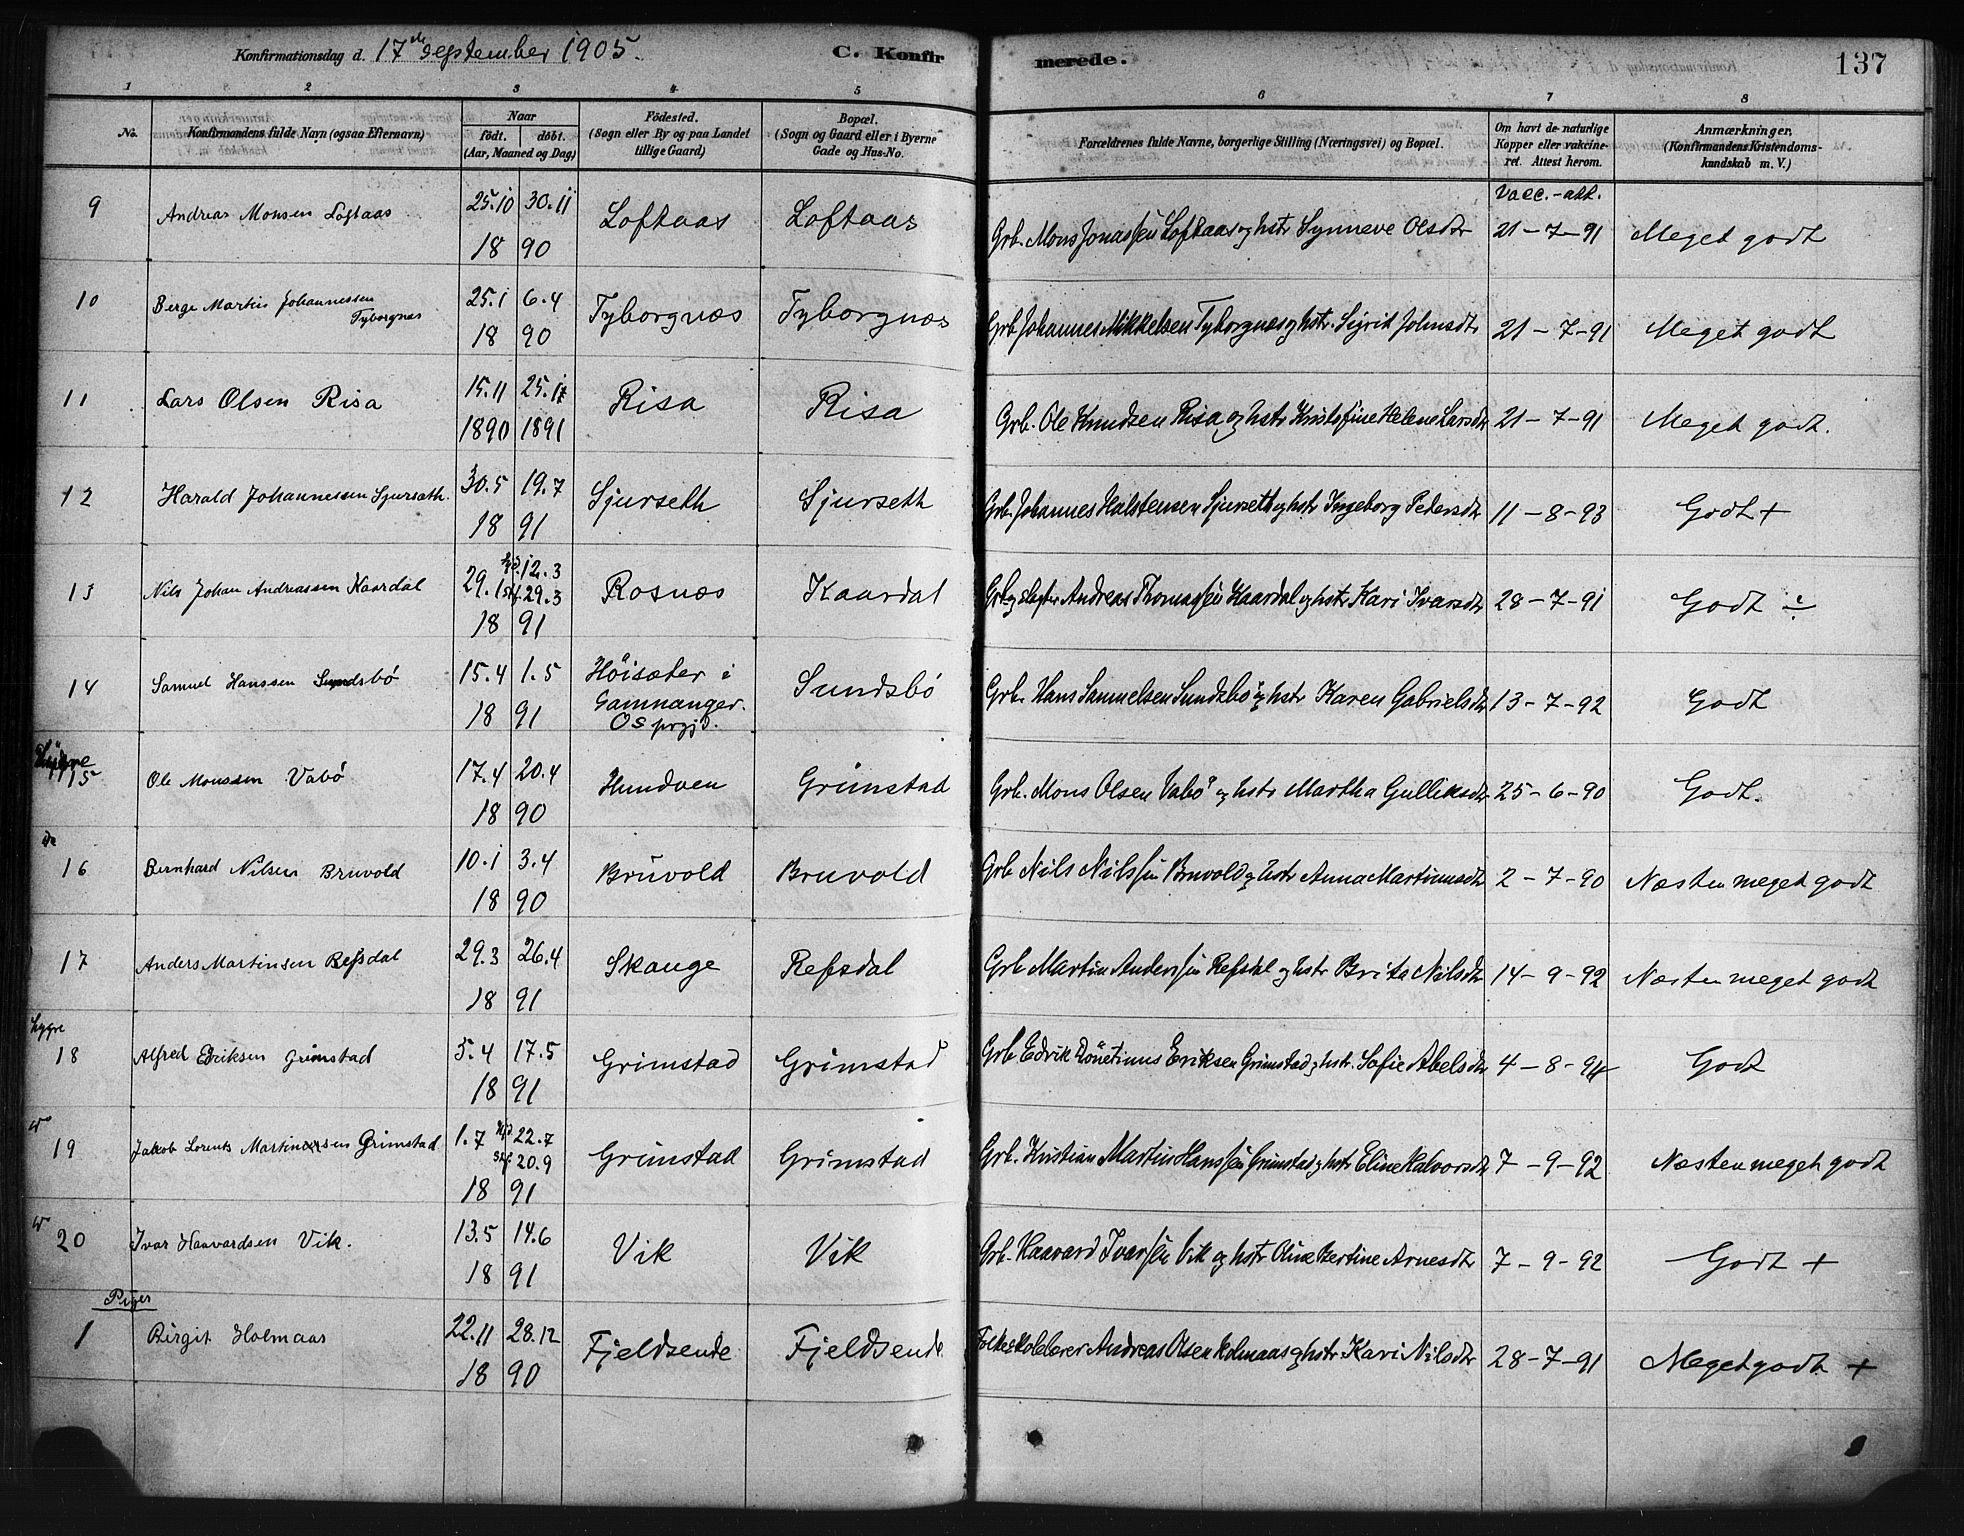 Konfirmationsdag d. 17de September 1905.
C. Konfir
merede.
137
1 2 3 4 5 6 7 8
No.
Konfirmandens fulde Navn (ogsaa Efternavn)
Naar
født. døbt.
(Aar, Maaned og Dag)
Fødested.
(Sogn eller By og paa Landet
tillige Gaard)
Bopæl.
(Sogn og Gaard eller i Byerne
Gade og Hus-No.
Forældrenes fulde Navne, borgerlige Stilling (Næringsvei) og Bopæl.
Om havt de naturlige
Kopper eller vakcine-
ret. Attest herom.
Anmærkninger,
(Konfirmandens Kristendoms-
kundskab m. V.)
Vacc.-att.
9 Andreas Monsen Loftaas 25.10 30.11 Loftaas Loftaas Grb. Mons Jonassen Loftaas og hstr Synneve Olsdtr 21-7-91 Meget godt
18 90
10 Berge Martin Johannessen 25.1 6.4 Tyborgnæs Tyborgnæs Grb. Johannes Mikkelsen Tyborgnæs og hstr. Sigrid Johnsdtr 21-7-91 Meget godt
Tyborgnæs 18 90
11 Lars Olsen Risa 15.11 25.1 Risa Risa Grb. Ole Knudsen Risa og hstr Kristofine Helene Larsdtr 21-7-91 Meget godt.
1890 1891
12 Harald Johannessen Sjurseth. 30.5 19.7 Sjurseth Sjurseth Grb. Johannes Halstensen Sjurseth og hstr Ingeborg Pedersdtr 11-8-93 Godt +
18 91
13 Nils Johan Andreassen Kaardal 29.1 12.3 Rosnæs Kaardal Grb og slagter Andreas Thomassen Kaardal og hstr Kari Ivarsdtr 28-7-91 Godt ÷
29.3
18 91
14 Samuel Hanssen Sundsbö 15.4 1.5 Höisæter i Sundsbö Grb. Hans Samuelsen Sundsbö og hstr Karen Gabrielsdtr 13-7-92 Godt
18 91 Samnanger.
Os prgjd.
Lygre
15 Ole Monssen Vabö 17.4 20.4 Hundven Grimstad Grb. Mons Olsen Vabö og hstr Martha Gulliksdtr 25-6-90 Godt.
18 90
do
16 Bernhard Nilsen Bruvold 10.1 3.4 Bruvold Bruvold Grb Nils Nilssen Bruvold og hstr Anna Martinusdtr 2-7-90 Næsten meget godt
18 90
17 Anders Martinsen Refsdal 29.3 26.4 Skauge Refsdal Grb Martin Anderssen Refsdal og hstr Brita Nilsdtr 14-9-92 Næsten meget godt
18 91
Lygre
18 Alfred Edriksen Grimstad 5.4 17.5 Grimstad Grimstad Grb Edrik Eriksen Grimstad og hstr. Sofie Abelsdtr 4-8-94 Godt
18 91
19 Jakob Lorents Martinussen Grimstad 1.7 22.7 Grimstad Grimstad Grb. Kristian Martin Hanssen Grimstad og hstr Eline Halvorsdtr 7-9-92 Næsten meget godt
20.9
18 91
20 Ivar Haavardsen Vik. 13.5 14.6 Vik Vik Grb. Haavard Ivarssen Vik og hstr Oline Bertine Arnesdtr 7-9-92 Godt +
18 91
Piger
1 Birgit Holmaas 22.11 28.12 Fjeldsende Fjeldsende Folkeskolelærer Andreas Olsen Holmaas og hstr Kari Nilsdtr 28-7-91 Meget godt +
18 90